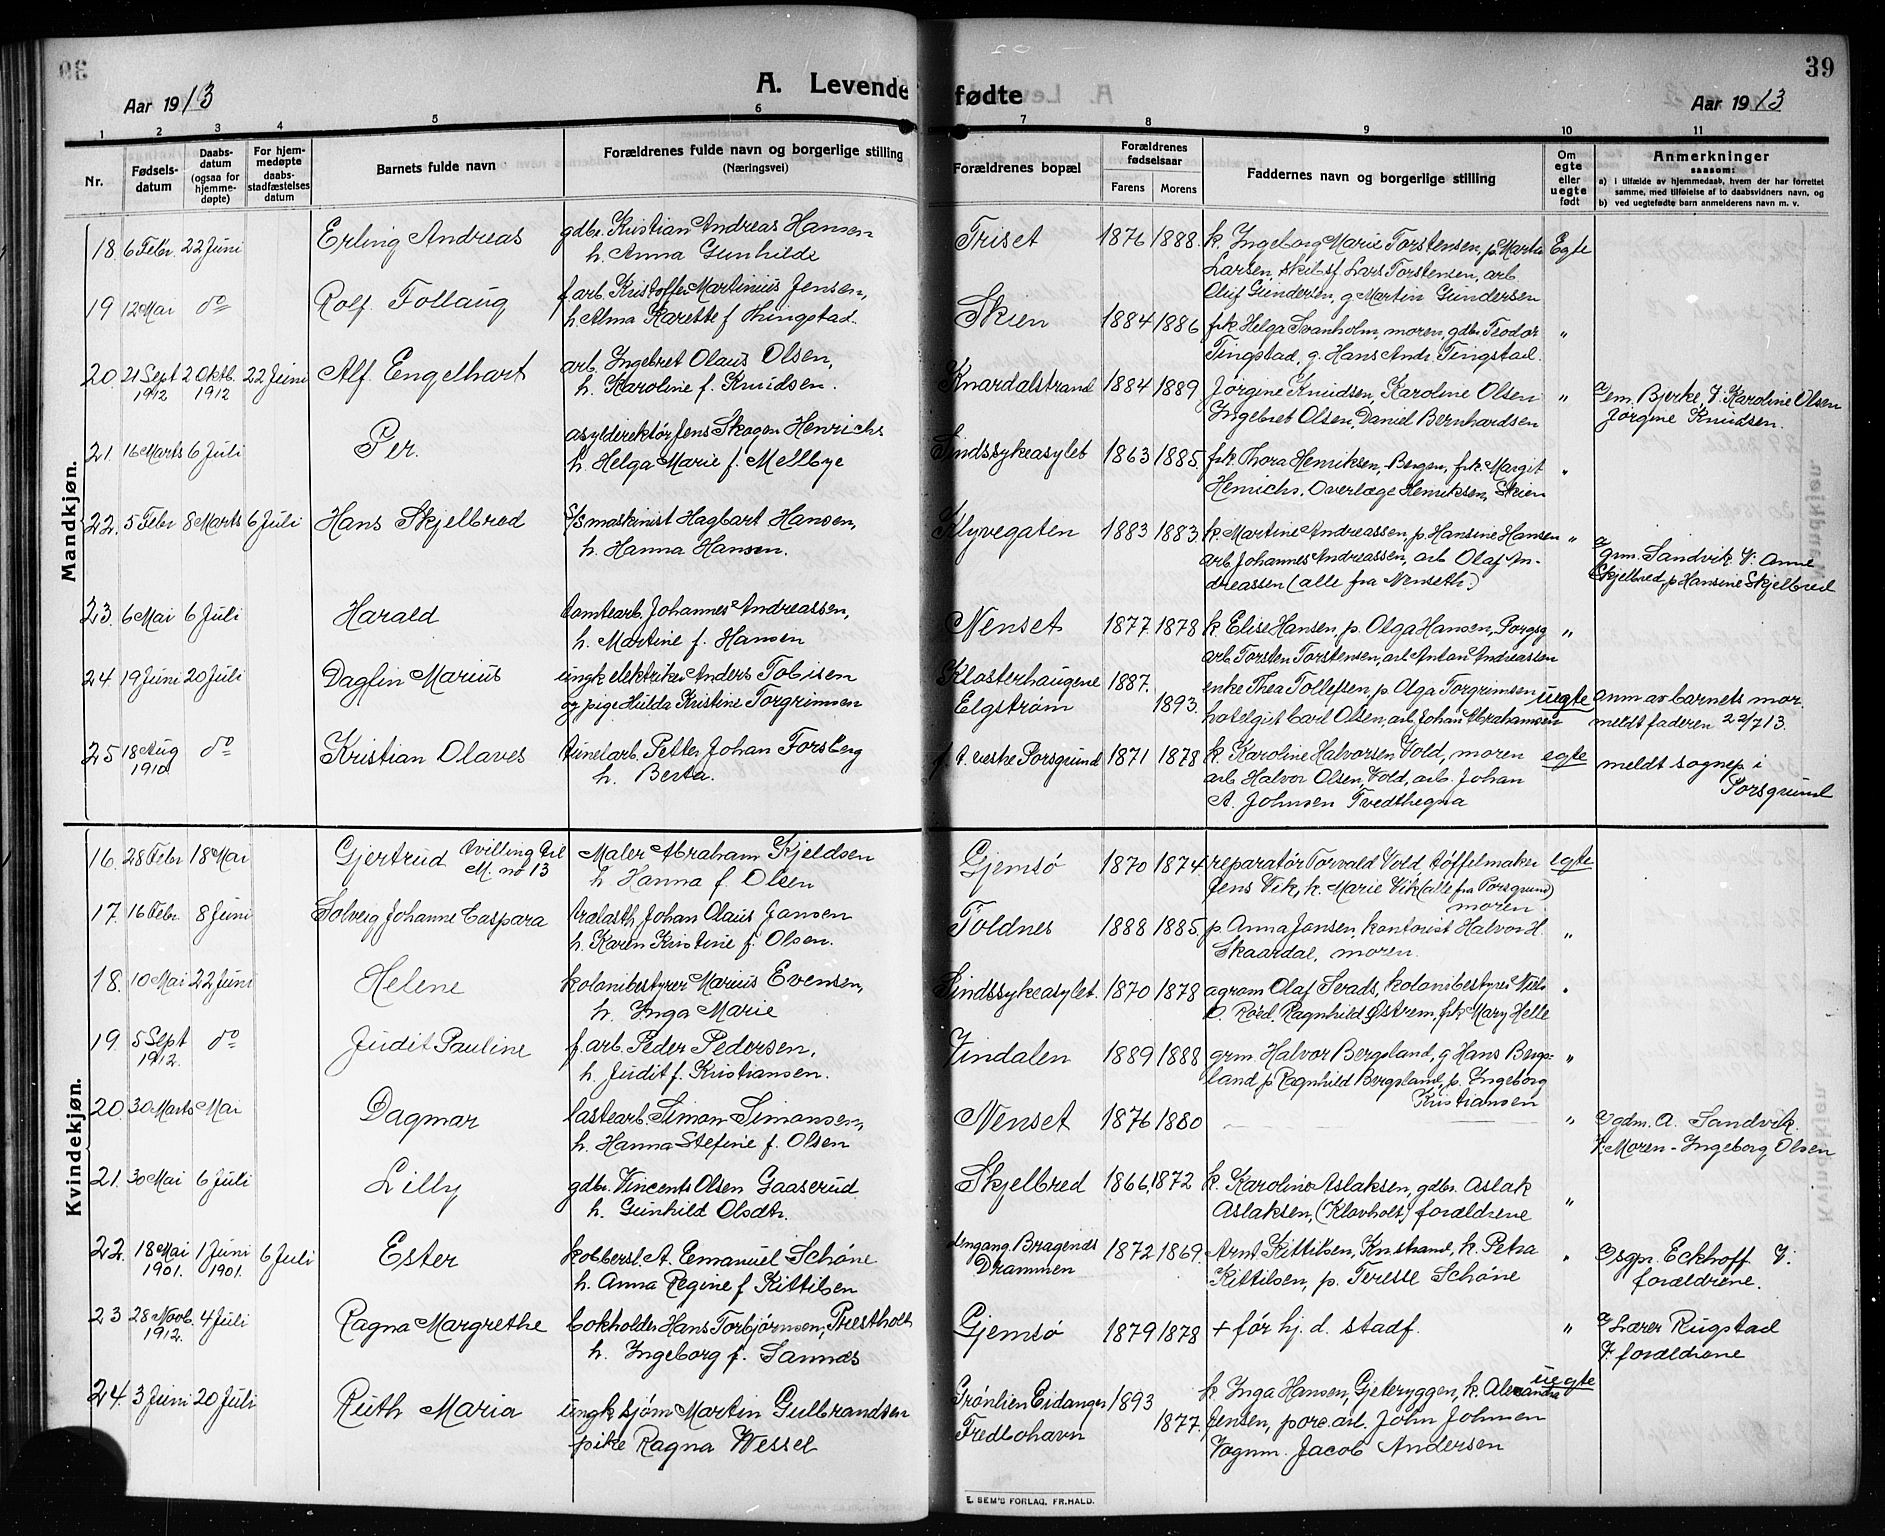 39
Aar 1913
A. Levendefødte
Aar 1913
1 2 3 4 5 6 7 8 9 10 11
Nr. | Fødselsdatum | Daabsdatum (ogsaa for hjemmedøpte) | For hjemmedøpte daabsstadfæstelses datum | Barnets fulde navn | Forældrenes fulde navn og borgerlige stilling (Næringsvei) | Forældrenes bopæl | Forældrenes fødselsaar Farens Morens | Faddernes navn og borgerlige stilling | Om egte eller uegte født | Anmerkninger saasom: a) i tilfælde av hjemmedaab, hvem der har forrettet samme, med tilføielse af to daabsvidners navn, og b) ved uegtefødte barn anmelderens navn m. v.
Mandkjøn.
18. 6 Febr. 22 Juni Erling Andreas gdbr. Kristian Andreas Hansen Triset 1876 1888. k. Ingeborg Marie Torstensen, p. Marta Egte
h. Anna Gunhilde Larsen, skibsf Lars Torstensen, arb
Oluf Gundersen, g Martin Gundersen
19 12 Mai do Rolf Follaug f. arb. Kristoffer Martinius Jensen, Skien 1884 1886 frk Helga Svanholm, moren, gdbr Teodor "
h. Alma Karette f Tingstad. Tingstad, g. Hans Andr. Tingstad.
20 21 Sept 1912 2 Oktb. 1912 22 Juni Alf Engelhart arb. Ingebret Olaus Olsen, Knardalstrand 1884 1889 Jørgine Knudsen, Karoline Olsen " em. Bjerke, V. Karoline Olsen
h. Karoline f. Knudsen. Ingebret Olsen, Daniel Bernhardsen Jørgine Knudsen.
21. 16 Marts 6 Juli Per. asyldirektør Jens Skogen Henrichs Sindssykeasylet 1863 1885. frk. Thora Henriksen, Bergen, frk. Margit "
h. Helga Marie f. Mellbye Henrichs, Overlæge Henriksen, Skien
22. 5 Febr 8 Marts 6 Juli Hans Skjelbred S/S maskinist Hagbart Hansen, Klyvegaten 1883 1883 k. Martine Andreassen, p. Hansine Hansen " grm. Sandvik V: Anne
h. Hanna Hansen. arb. Johannes Andreassen, arb Olaf An- Skjelbred, p Hansine Skjelbred
dreassen (alle fra Nenseth.)
23. 6 Mai 6 Juli Harald tomtearb. Johannes Andreassen, Nenset 1877. 1878 k. Elise Hansen, p. Olga Hansen, Porsg. "
h. Martine f. Hansen arb Torsten Torstensen, arb Anton Andreassen
24 19 Juni 20 Juli Dagfin Marius ungk elektriker Anders Tobisen Klosterhaugene 1887. enke Thea Tollefsen, p. Olga Torgrimsen uegte anm av barnets mor.
og pige Hulda Kristine Torgrimsen Elgstrøm 1893. hotelgit Carl Olsen, arb. Johan Abrahamsen meldt faderen 22/7 13.
25 18 Aug 1910 do Kristian Olaves tunelarb. Petter Johan Forsberg Porsgrund 1871 1878 k. Karoline Halvorsen Vold, moren egte meldt sognep i
h. Berta. arb Halvor Olsen Vold, arb. Johan Porsgrund
A. Johnsen Tvedthegna
Kvindekjøn.
16. 28 Febr 18 Mai Gjertrud tvilling til M. no 13 Maler Abraham Kjeldsen Gjemsø 1870 1874 reparatør Torvald Vold, tøffelmaker egte
h. Hanna f. Olsen Jens Vik, k. Marie Vik (alle fra Porsgrund)
moren.
17. 16 Febr. 8 Juni Solveig Johanne Caspara Johan Olaus Jansen Foldnes 1888 1885. p. Anna Jansen, kontorist Halvor H. "
h. Karen Kristine f. Olsen. Skaardal, moren.
18. 10 Mai 22 Juni Helene kolonibestyrer Marius Evensen, Sindssykeasylet. 1870 1878 agrom Olaf Svads, kolonibestyrer Nils "
h. Inga Marie O. Røed. Ragnhild Østrem, frk Mary Helle
19. 5 Sept 1912. do Judit Pauline f. arb. Peder Pedersen. Vindalen 1889 1888 grm. Halvor Bergsland, g Hans Bergs- "
h. Judit f. Kristiansen. land, p Ragnhild Bergsland, p. Ingeborg
Kristiansen
20. 30 Marts Mai Dagmar lastearb. Simon Simonsen, Nenset 1876 1880 " gdm. A. Sandvik.
h. Hanna Stefine f. Olsen V: Moren - Ingeborg Olsen
21. 30 Mai 6 Juli Lilly gdbr. Vincents Olsen Gaaserud Skjelbred 1866 1872 k. Karoline Aslaksen, gdbr. Aslak "
h. Gunhild Olsdtr. Aslaksen, (Klovholt) forældrene
22. 18 Mai 1901. 1 Juni 1901. 6 Juli Ester kobbersl. A. Emanuel Schøne Bragends Drammen 1872 1869. Arnt Kittilsen, Knstrand, k. Petra " sgpr. Eckhoff V:
h. Anna Regine f Kittilsen Kittilsen, p. Teresse Schøne forældrene.
23 28 Novb. 1912. 4 Juli Ragna Margrethe bokholder Hans Torbjørnsen, Prestholt Gjemsø 1879 1878 + før hj. d. stadf. " Lærer Rugstad
h. Ingeborg f. Sannes V. forældrene
24. 3 Juni 20 Juli Ruth Maria ungk sjøm Martin Gulbrandsen Grønlien Eidanger 1893 k Inga Hansen, Gjeteryggen, k. Alexandra uegte
pike Ragna Wessel Fredbohavn 1877. Jensen, porc. arb. John Johnsen
Vognm. Jacob Andersen
E. SEM'S FORLAG, FR.HALD.